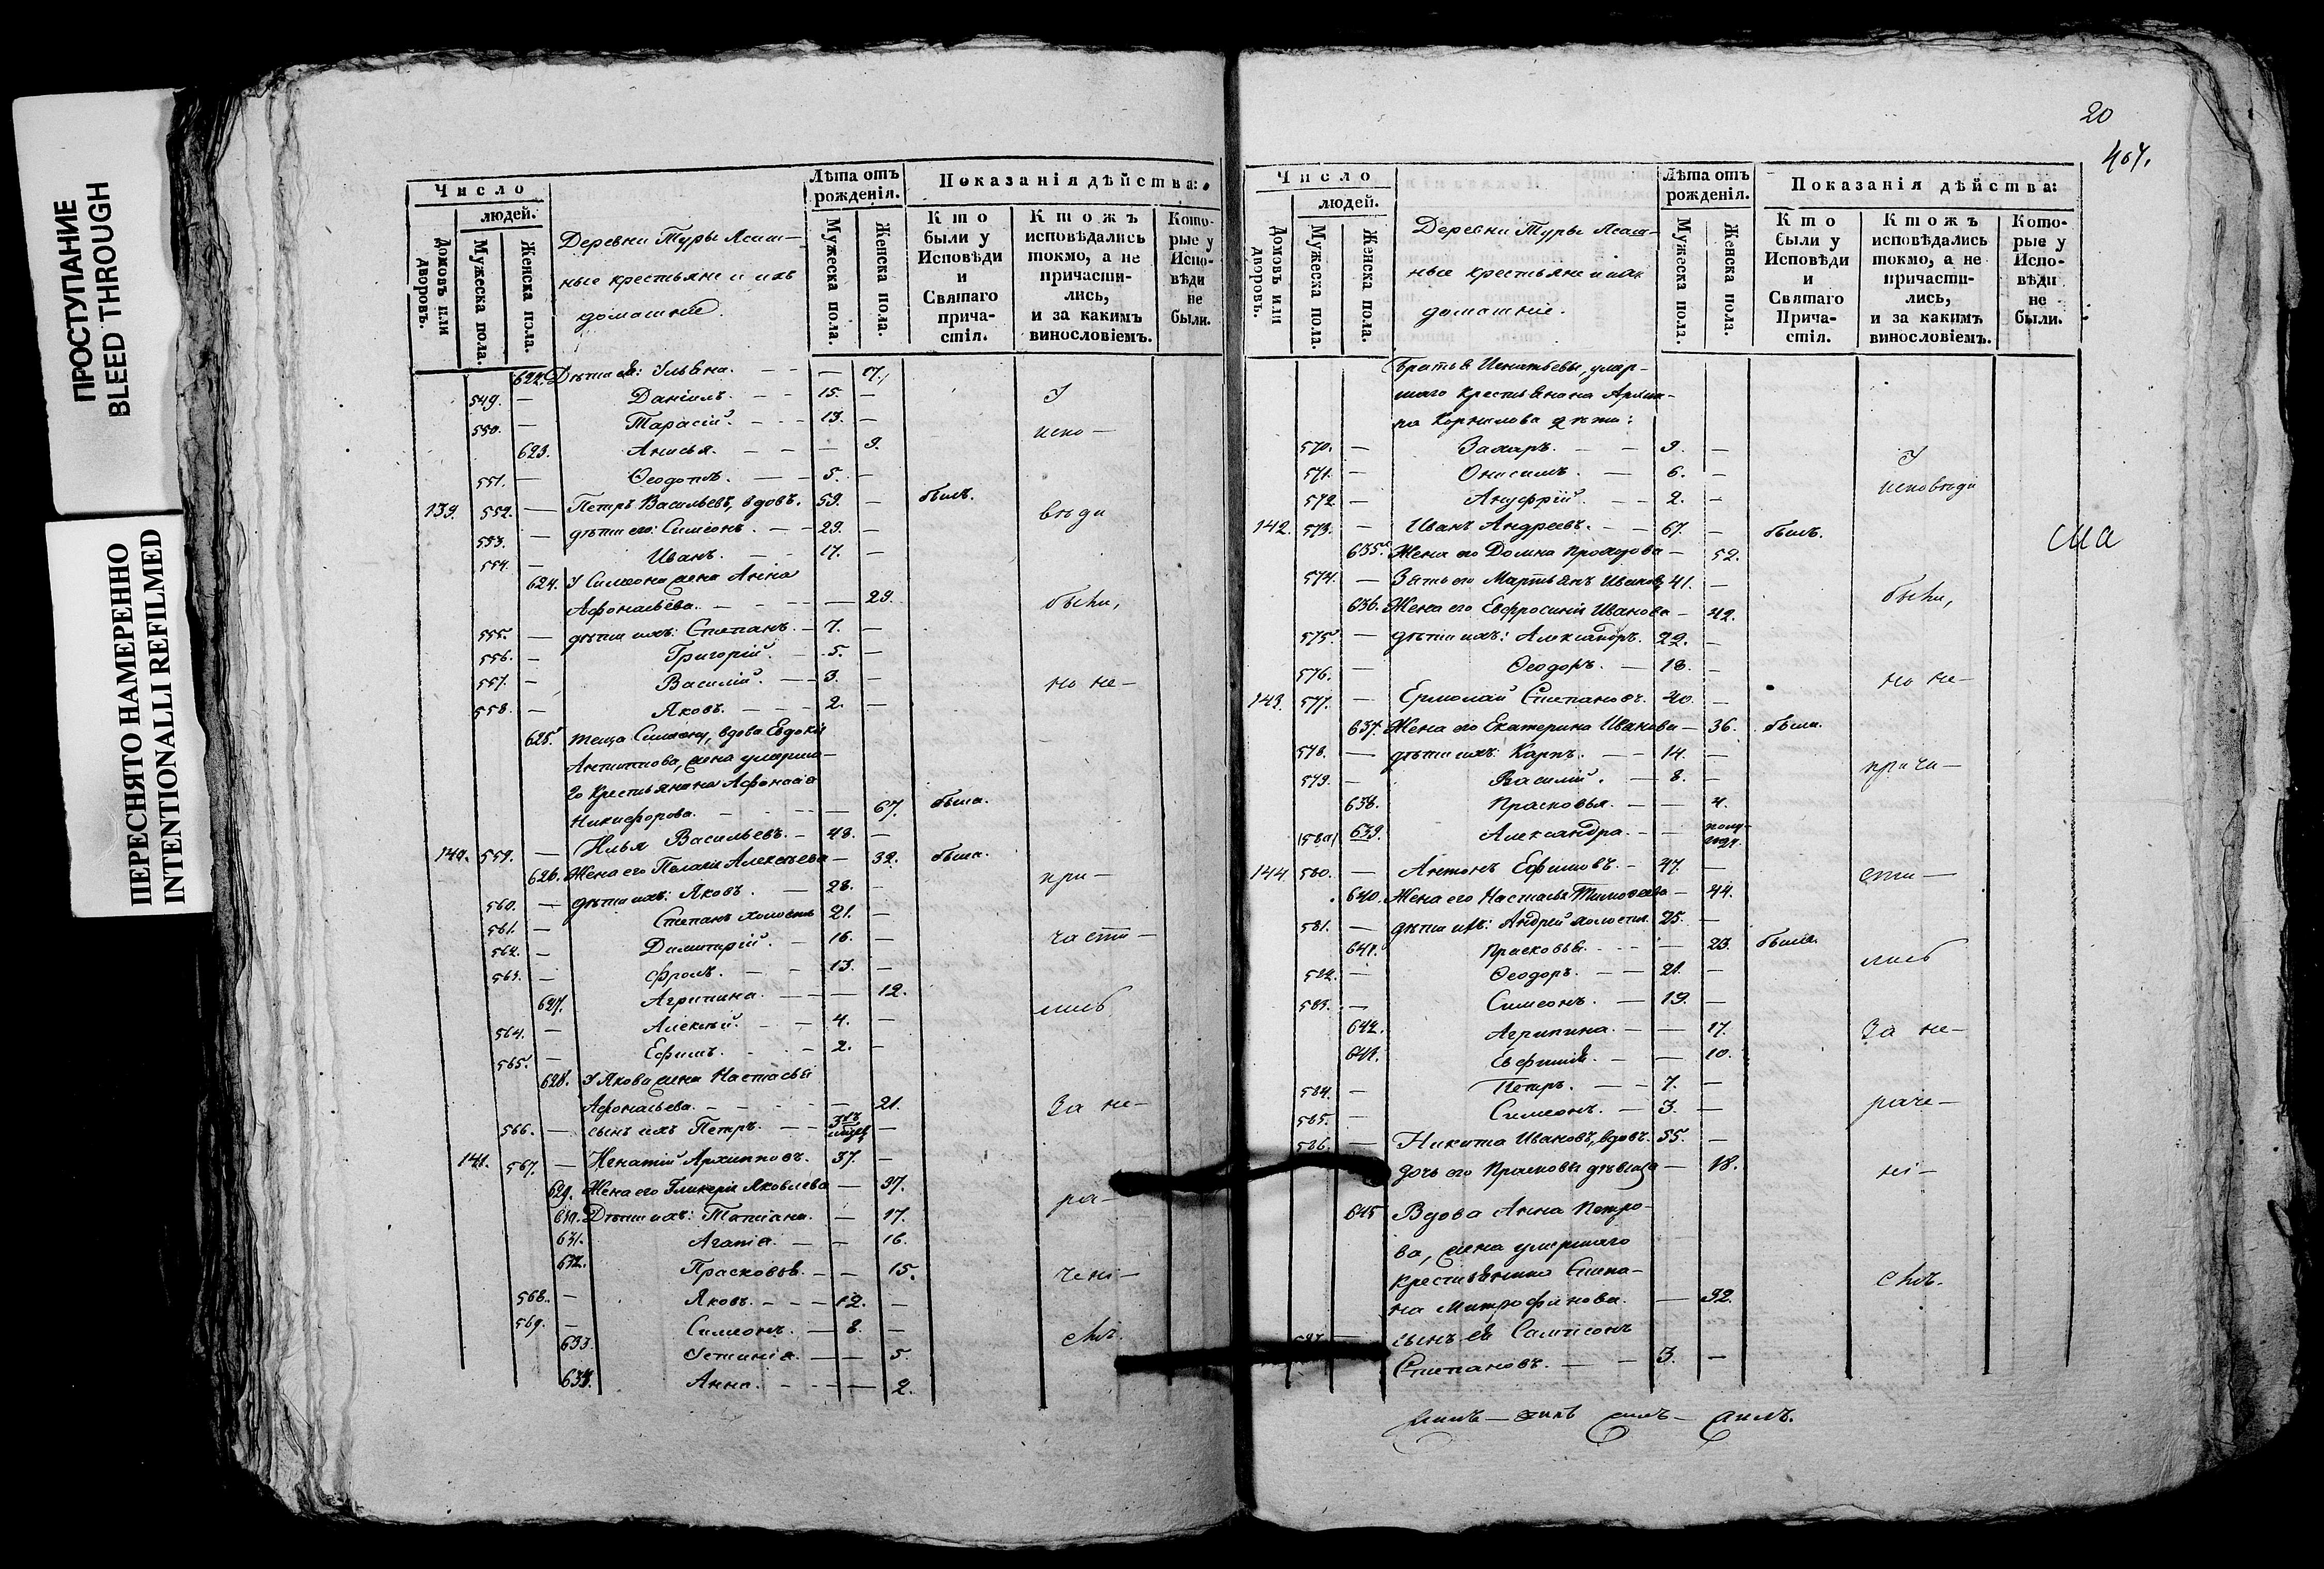 ПРОСТУПАНИЕ
BLEED THROUGH
ПЕРЕСНЯТО НАМЕРЕННО
INTENTIONALLI REFILMED
Число
людей.
Домовъ или дворовъ.
Мужеска пола.
Женска пола.
Деревни Туры Ясаш-
ные крестьяне и ихъ
домашніе.
Лѣта отъ рожденія.
Мужеска пола.
Женска пола.
Показанія дѣйства:
Кто были у Исповѣди и Святаго причастія.
Ктожъ исповѣдались токмо, а не причасти-лись, и за какимъ винословіемъ.
Кото-рые у Испо-вѣди не были.
622. Дѣти ея: Ульяна. — 7.
549. — Даніилъ. 15. — У
550. — Тарасій. 13. —
623. Анисья. — 9. испо-
551. — Ѳеодотъ. 5. —
139. 552. — Петръ Васильевъ, вдовъ. 59. — былъ.
553. — дѣти его: Симеонъ. 29. — вѣди
554. — Иванъ. 17. —
624. У Симеона жена Анна
Афонасьева. — 29. были,
555. — дѣти ихъ: Степанъ. 7. —
556. — Григорій. 5. —
557. — Василій. 3. — но не-
558. — Яковъ. 2. —
625. теща Симеону, вдова Евдокія
Антипова, жена умерша-
го крестьянина Афонасія
Никифорова. — 67. была.
140. 559. — Илья Васильевъ. 48. —
626. Жена его Пелагія Алексѣева — 39. была.
560. — дѣти ихъ: Яковъ. 28. — при-
561. — Степанъ холостъ 21. —
562. — Димитрій. 16. — части-
563. — Фролъ. 13. —
627. Агрипина. — 12.
564. — Алексѣй. 4. — лись
565. — Ефимъ. 2. —
628. У Якова жена Настасья
Афонасьева. — 21. За не-
566. — сынъ ихъ Петръ.
141. 567. — Игнатій Архиповъ. 37. —
629. Жена его Гликерія Яковлева — 37.
630. Дѣти ихъ: Татіана. — 17. ра-
631. Агапія. — 16.
632. Прасковья. — 15. чені-
568. — Яковъ. 12. —
569. — Симеонъ. 8. —
633. Устинія. — 5. емъ.
634. Анна. — 2.
20
407.
Число
людей.
Домовъ или дворовъ.
Мужеска пола.
Женска пола.
Деревни Туры Ясаш-
ные крестьяне и ихъ
домашніе.
Лѣта отъ рожденія.
Мужеска пола
Женска пола.
Показанія дѣйства:
Кто были у Исповѣди и Святаго Прича-стія.
Ктожъ исповѣдались токмо, а не причасти-лись, и за какимъ винословіемъ.
Кото-рые у Испо-вѣди не были.
Братья Игнатьевы, умер-
шаго крестьянина Архи-
па Корнилова дѣти:
570. — Захаръ. 9. —
571. — Онисимъ. 6. — У
572 — Ануфрій. 2. — исповѣди
142. 573. — Иванъ Андреевъ. 67. — былъ.
635. Жена его Домна — 52.
574. — Зять его Мартьянъ Ивановъ 41. —
636. Жена его Евфросинія Иванова — 42. были,
575. — дѣти ихъ: Александръ. 22. —
576. — Ѳеодоръ. 18. —
143. 577. — Ермолай Степановъ. 40. — но не-
637. Жена его Екатерина Иванова — 36. была.
578. — дѣти ихъ: Карпъ. 14. —
579. — Василій. 8. — прича-
638. Прасковья. — 4.
639. Александра. — полу-года
144. 580. — Антонъ Ефимовъ. 47. — сти-
640. Жена его Настасья Тимоѳеева — 44.
581. — дѣти ихъ: Андрей холостъ. 25. —
641. Прасковья. — 23. была.
582. — Ѳеодоръ. 21. — лись
583. — Симеонъ. 19. —
642. Агрипина. — 17. За не-
Евфимія. — 10.
584. — Петръ. 7. —
585. — Симеонъ. 3. — раче-
586. — Никита Ивановъ, вдовъ. 55. —
дочь его Прасковья дѣвица — 18. ні-
645 Вдова Анна Петро-
ва, жена умершаго
крестьянина Степа-
на Митрофанова. — 32. емъ.
сынъ ея Сампсонъ
Степановъ. 3. —